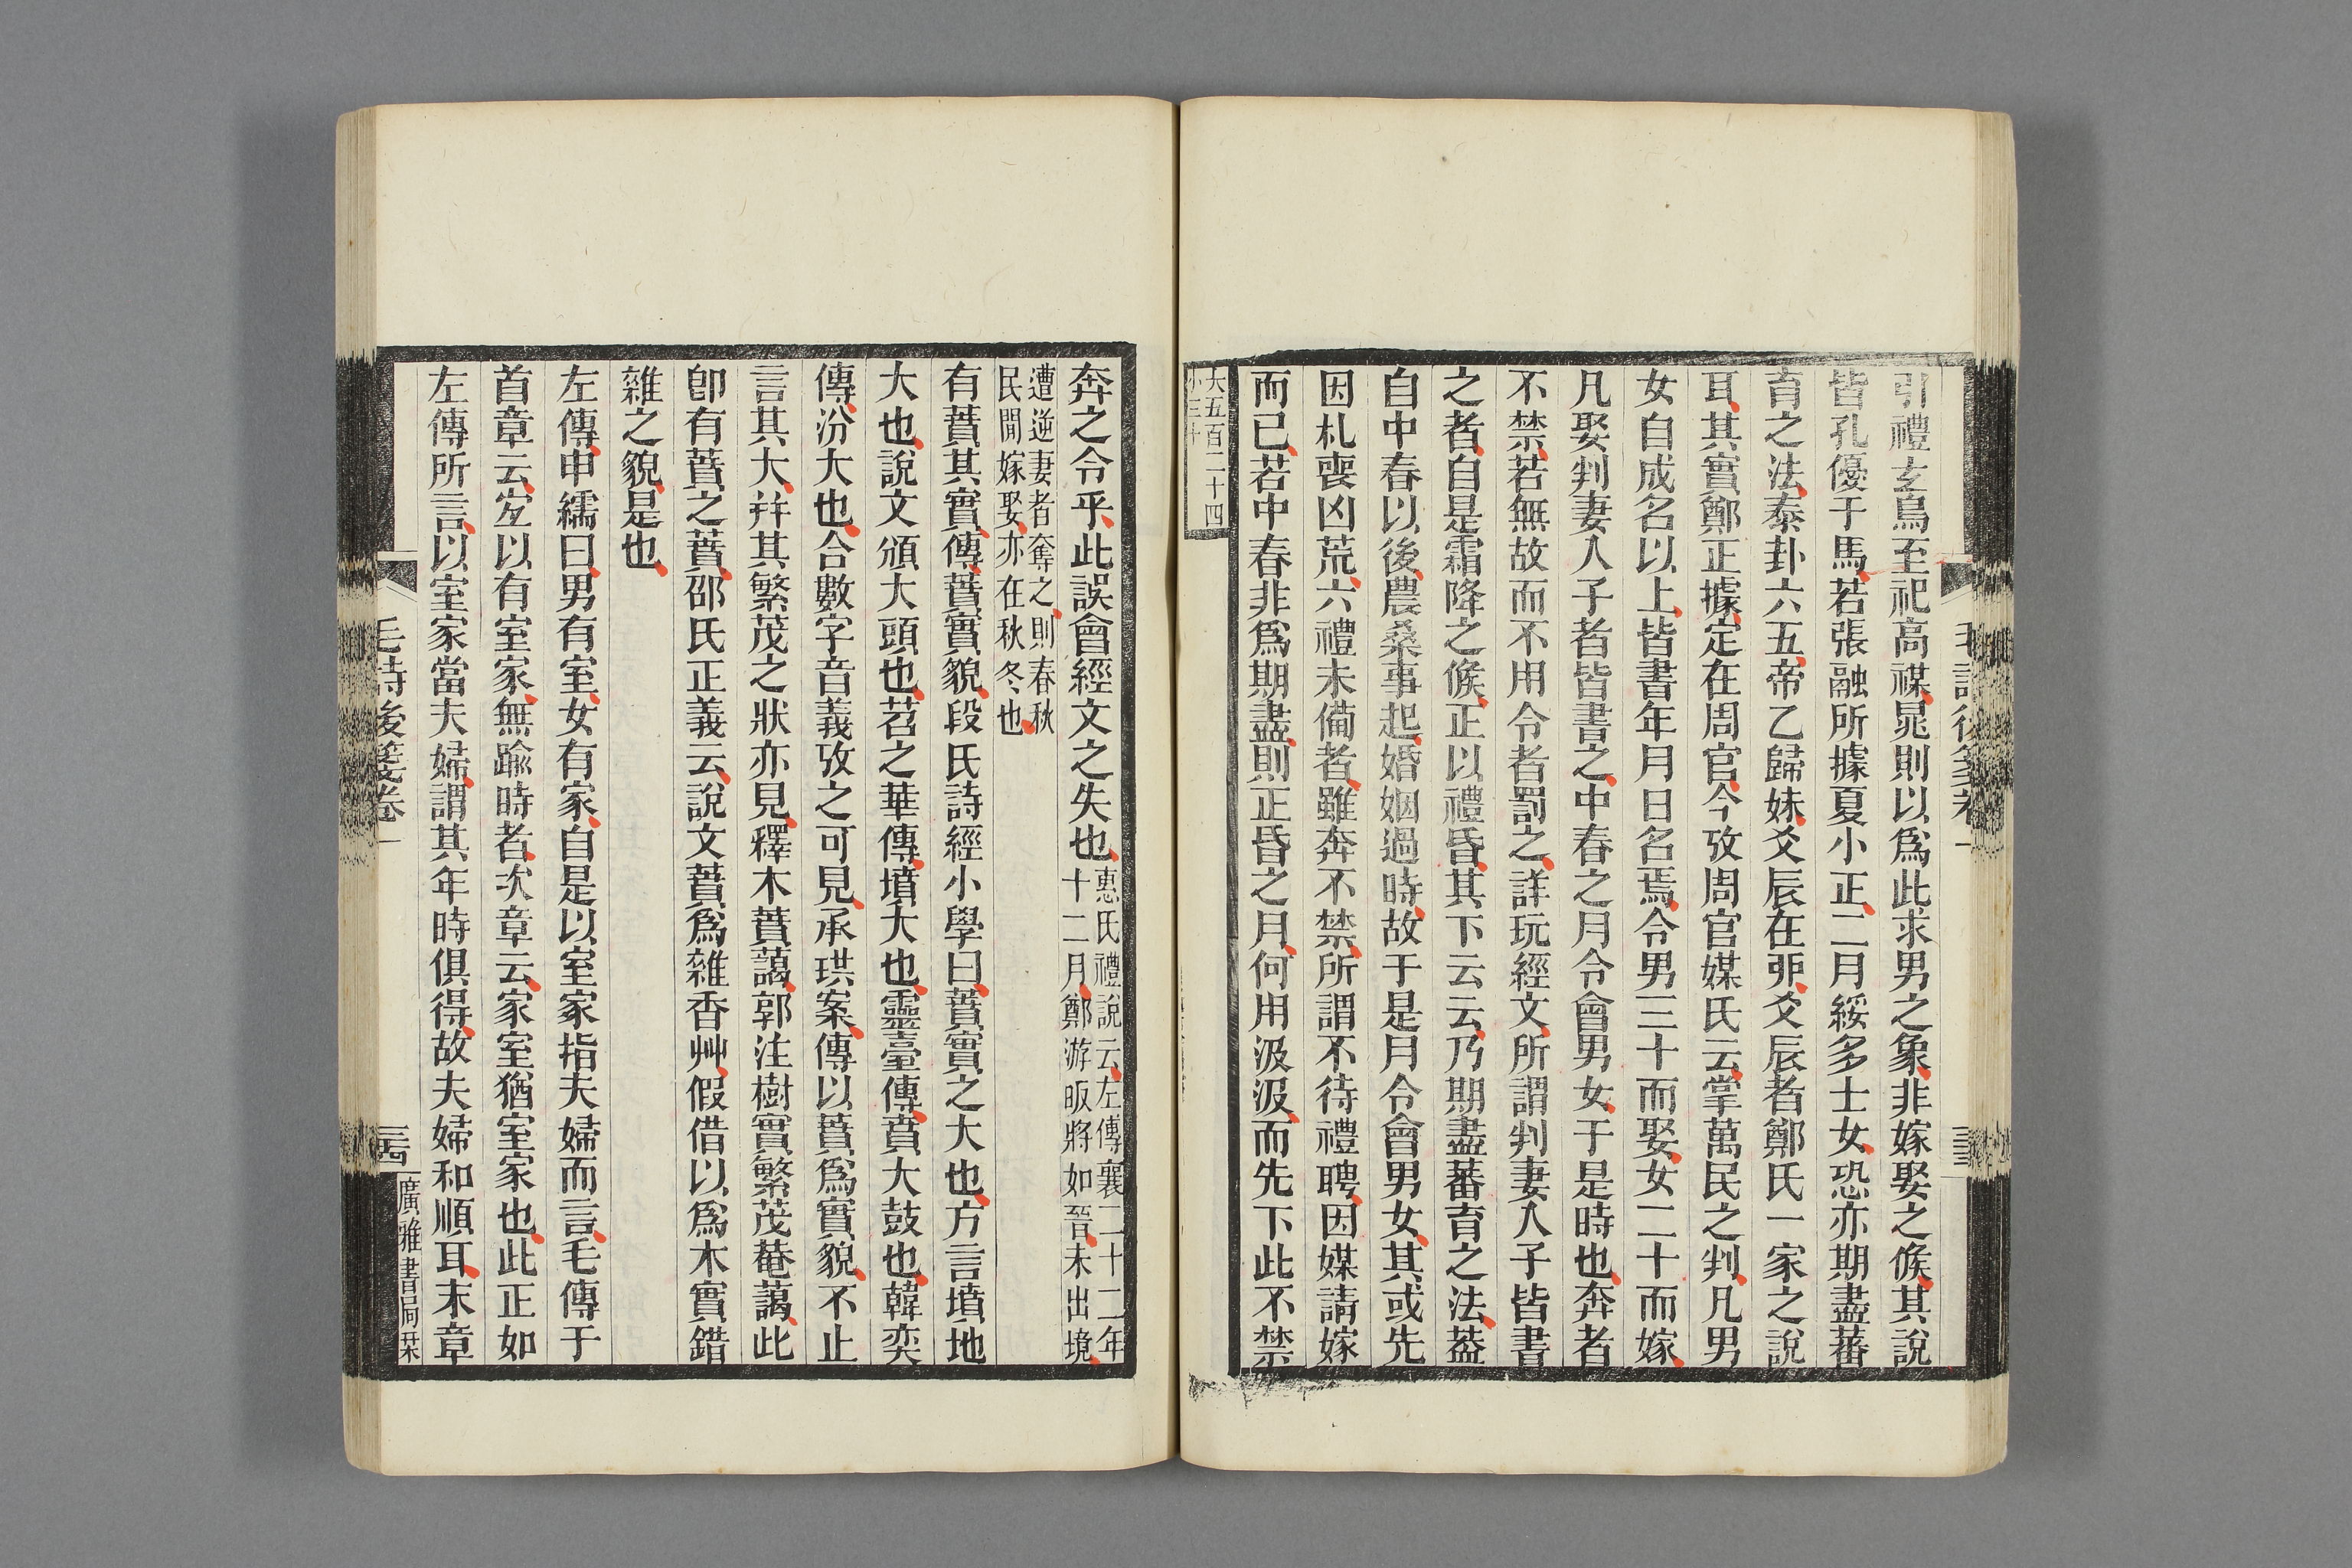 引禮玄鳥至祀高禖晁則以爲此求男之象非嫁娶之候其說
皆孔優于馬若張融所據夏小正二月綏多士女恐亦期盡蕃
育之法泰卦六五帝乙歸妹爻辰在丣爻辰者鄭氏一家之說
耳其實鄭正據定在周官今攷周官媒氏云掌萬民之判凡男
女自成名以上皆書年月日名焉令男三十而娶女二十而嫁
凡娶判妻入子者皆書之中春之月令會男女于是時也奔者
不禁若無故而不用令者罰之詳玩經文所謂判妻入子皆書
之者自是霜降之候正以禮昏其下云云乃期盡蕃育之法葢
自中春以後農桑事起婚姻過時故于是月令會男女其或先
因札喪凶荒六禮未備者雖奔不禁所謂不待禮聘因媒請嫁
而已若中春非爲期盡則正昏之月何用汲汲而先下此不禁
大五百二十四
小三十
毛詩後箋卷一
三三
奔之令乎此誤會經文之失也惠氏禮說云左傳襄二十二年
十二月鄭游昄將如晉未出境
遭逆妻者奪之則春秋
民閒嫁娶亦在秋冬也
有蕡其實傳蕡實貌段氏詩經小學曰蕡實之大也方言墳地
大也說文頒大頭也苕之華傳墳大也靈臺傳賁大鼓也韓奕
傳汾大也合數字音義攷之可見承珙案傳以蕡爲實貌不止
言其大幷其繁茂之狀亦見釋木蕡藹郭注樹實繁茂菴藹此
卽有蕡之蕡邵氏正義云說文蕡爲雜香艸假借以爲木實錯
雜之貌是也
左傳申繻曰男有室女有家自是以室家指夫婦而言毛傳于
首章云宐以有室家無踰時者次章云家室猶室家也此正如
左傳所言以室家當夫婦謂其年時俱得故夫婦和順耳末章
毛詩後箋卷一
三四
廣雅書局栞